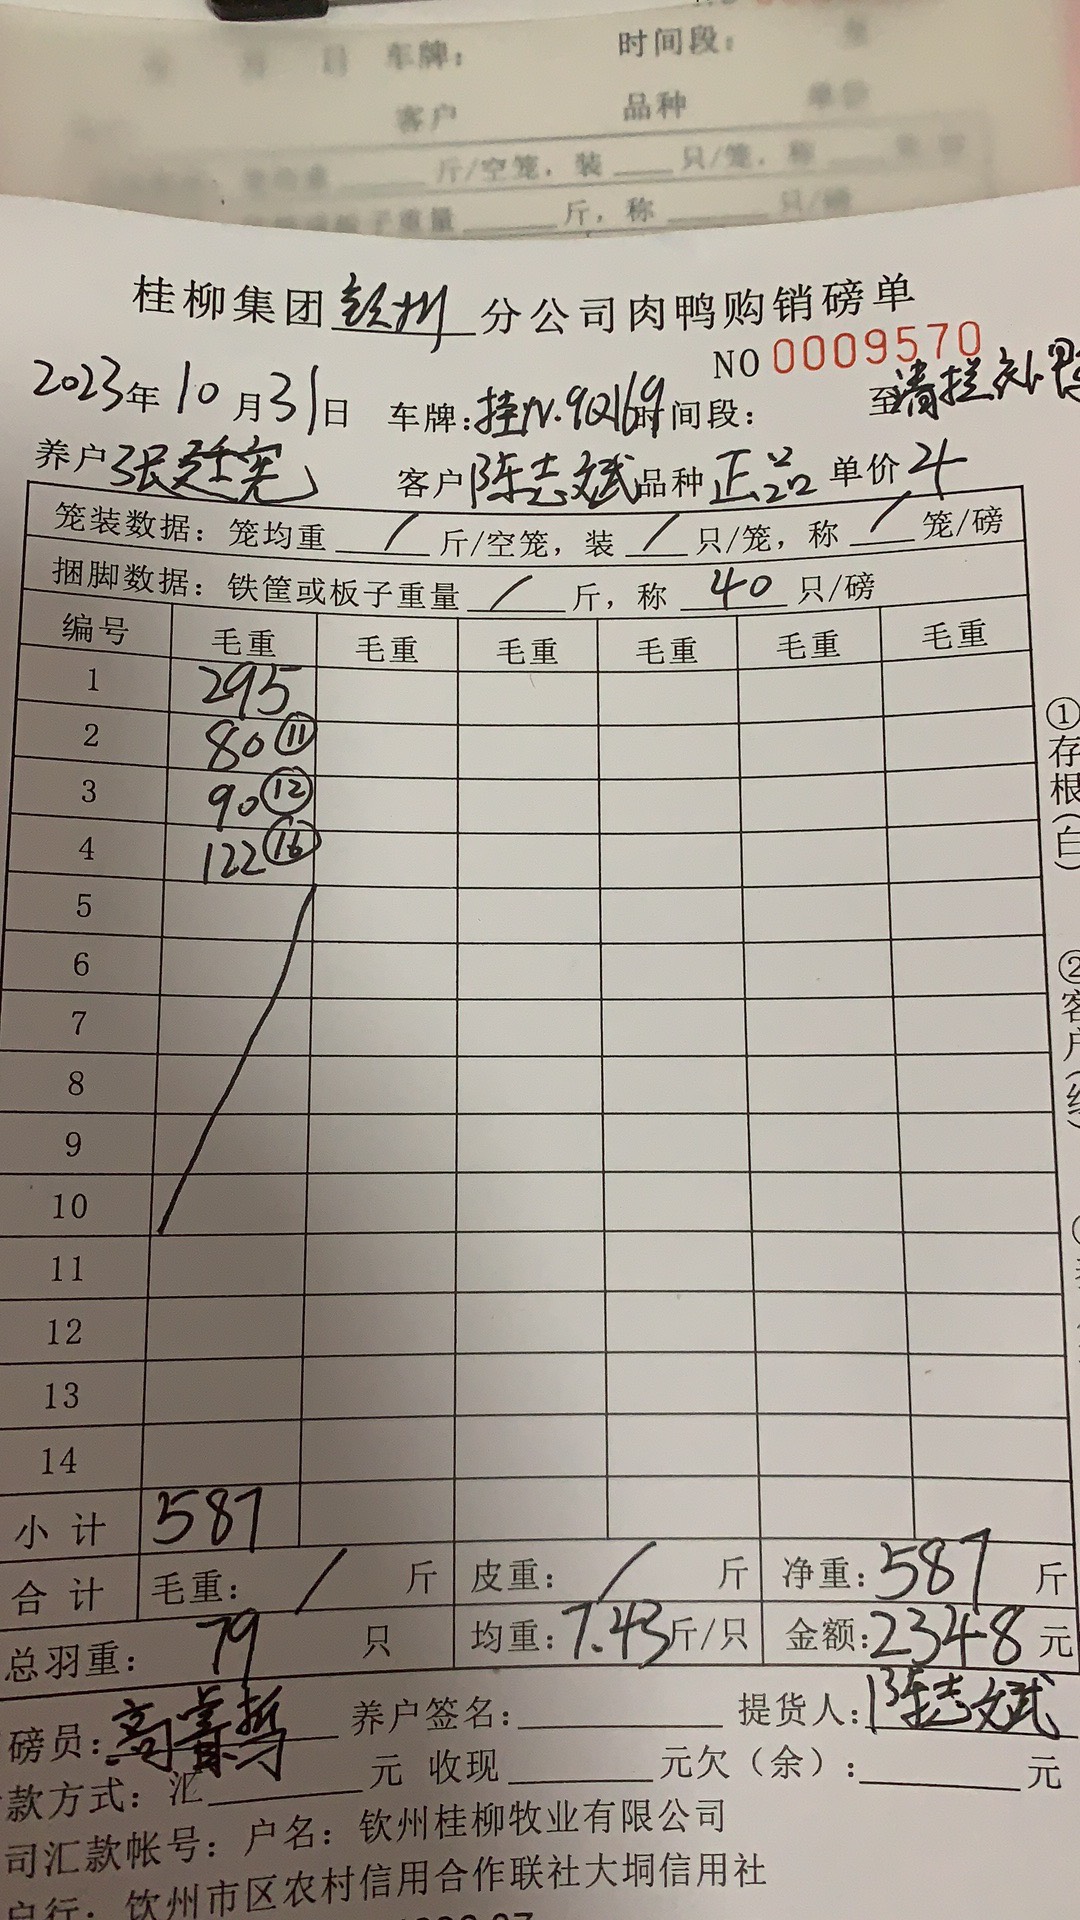 车牌： 时间段：
客户 品种 单价
斤/空笼，装 只/笼，称
子重量 斤，称 只/磅
桂柳集团钦州分公司肉鸭购销磅单
NO 0009570
2023年10月31日 车牌：桂N.9Q169时间段： 至清拦处理
养户张廷宪 客户陈志斌品种正品单价4
笼装数据：笼均重/斤/空笼，装/只/笼，称/笼/磅
捆脚数据：铁筐或板子重量/斤，称40只/磅
编号 毛重 毛重 毛重 毛重 毛重 毛重
1 295
2 80⑪
3 90⑫
4 122⑯
5
6
7
8
9
10
11
12
13
14
小计 587
合计 毛重：/斤 皮重：/斤 净重：587斤
总羽重：79只 均重：7.43斤/只 金额：2348元
磅员： 养户签名： 提货人：陈志斌
款方式：汇 元 收现 元欠（余）： 元
司汇款帐号：户名：钦州桂柳牧业有限公司
户行：钦州市区农村信用合作联社大垌信用社
①存根(白)
②客户(红)